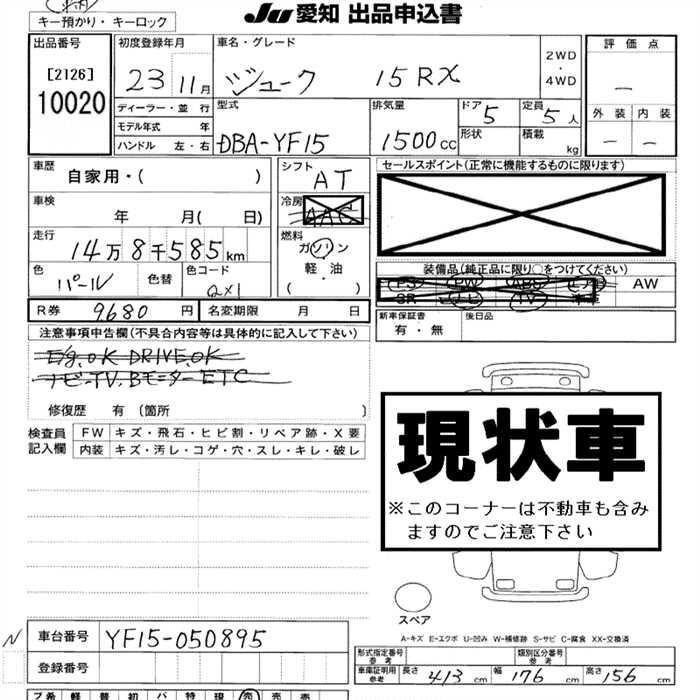 JU 愛知 出品申込書
キー預かり・キーロック
出品番号
[2126]
10020
初度登録年月
23 11月
車名・グレード
ジューク 15RX
2WD
・
4WD
評価点
—
外装 内装
— —
ディーラー・並行
モデル年式 年
ハンドル 左・右
型式
DBA-YF15
排気量
1500cc
ドア
5
形状
定員
5人
積載
kg
車歴
自家用・( )
車検
年 月( 日)
走行
14万8千585km
色
パール
色替
色コード
QX1
シフト
AT
冷房
AAC
燃料
ガソリン
軽油
( )
セールスポイント(正常に機能するものに限ります)
装備品(純正品に限り○をつけてください)
PS PW ABS エアB AW
SR ナビ TV 本革
新車保証書
有・無
後日品
R券 9680円
名変期限 月 日
注意事項申告欄(不具合内容等は具体的に記入して下さい)
E/g.OK DRIVE.OK
ナビ-TV.Bモニター ETC
修復歴 有 〔箇所 〕
検査員
記入欄
FW キズ・飛石・ヒビ割・リペア跡・X要
内装 キズ・汚レ・コゲ・穴・スレ・キレ・破レ
現状車
※このコーナーは不動車も含み
ますのでご注意下さい
スペア
A-キズ E-エクボ U-凹み W-補修跡 S-サビ C-腐食 XX-交換済
N
車台番号 YF15-050895
登録番号
形式指定番号
参考
類別区分番号
参考
車庫証明用
参考
長さ 413cm 幅 176cm 高さ 156cm